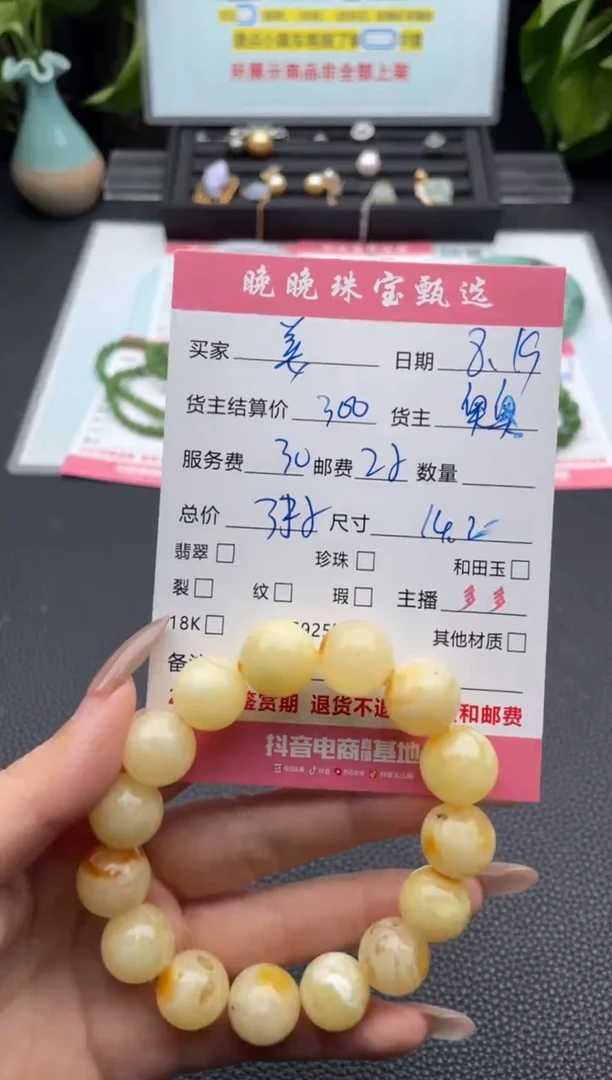 所展示商品非全部上架
晚晚珠宝甄选
买家 美 日期 8.19
货主结算价 300 货主
服务费 30 邮费 28 数量
总价 358 尺寸 14.2
翡翠 珍珠 和田玉
裂 纹 瑕 主播 多多
18K 925 其他材质
鉴赏期 退货不退 和邮费
抖音电商 基地